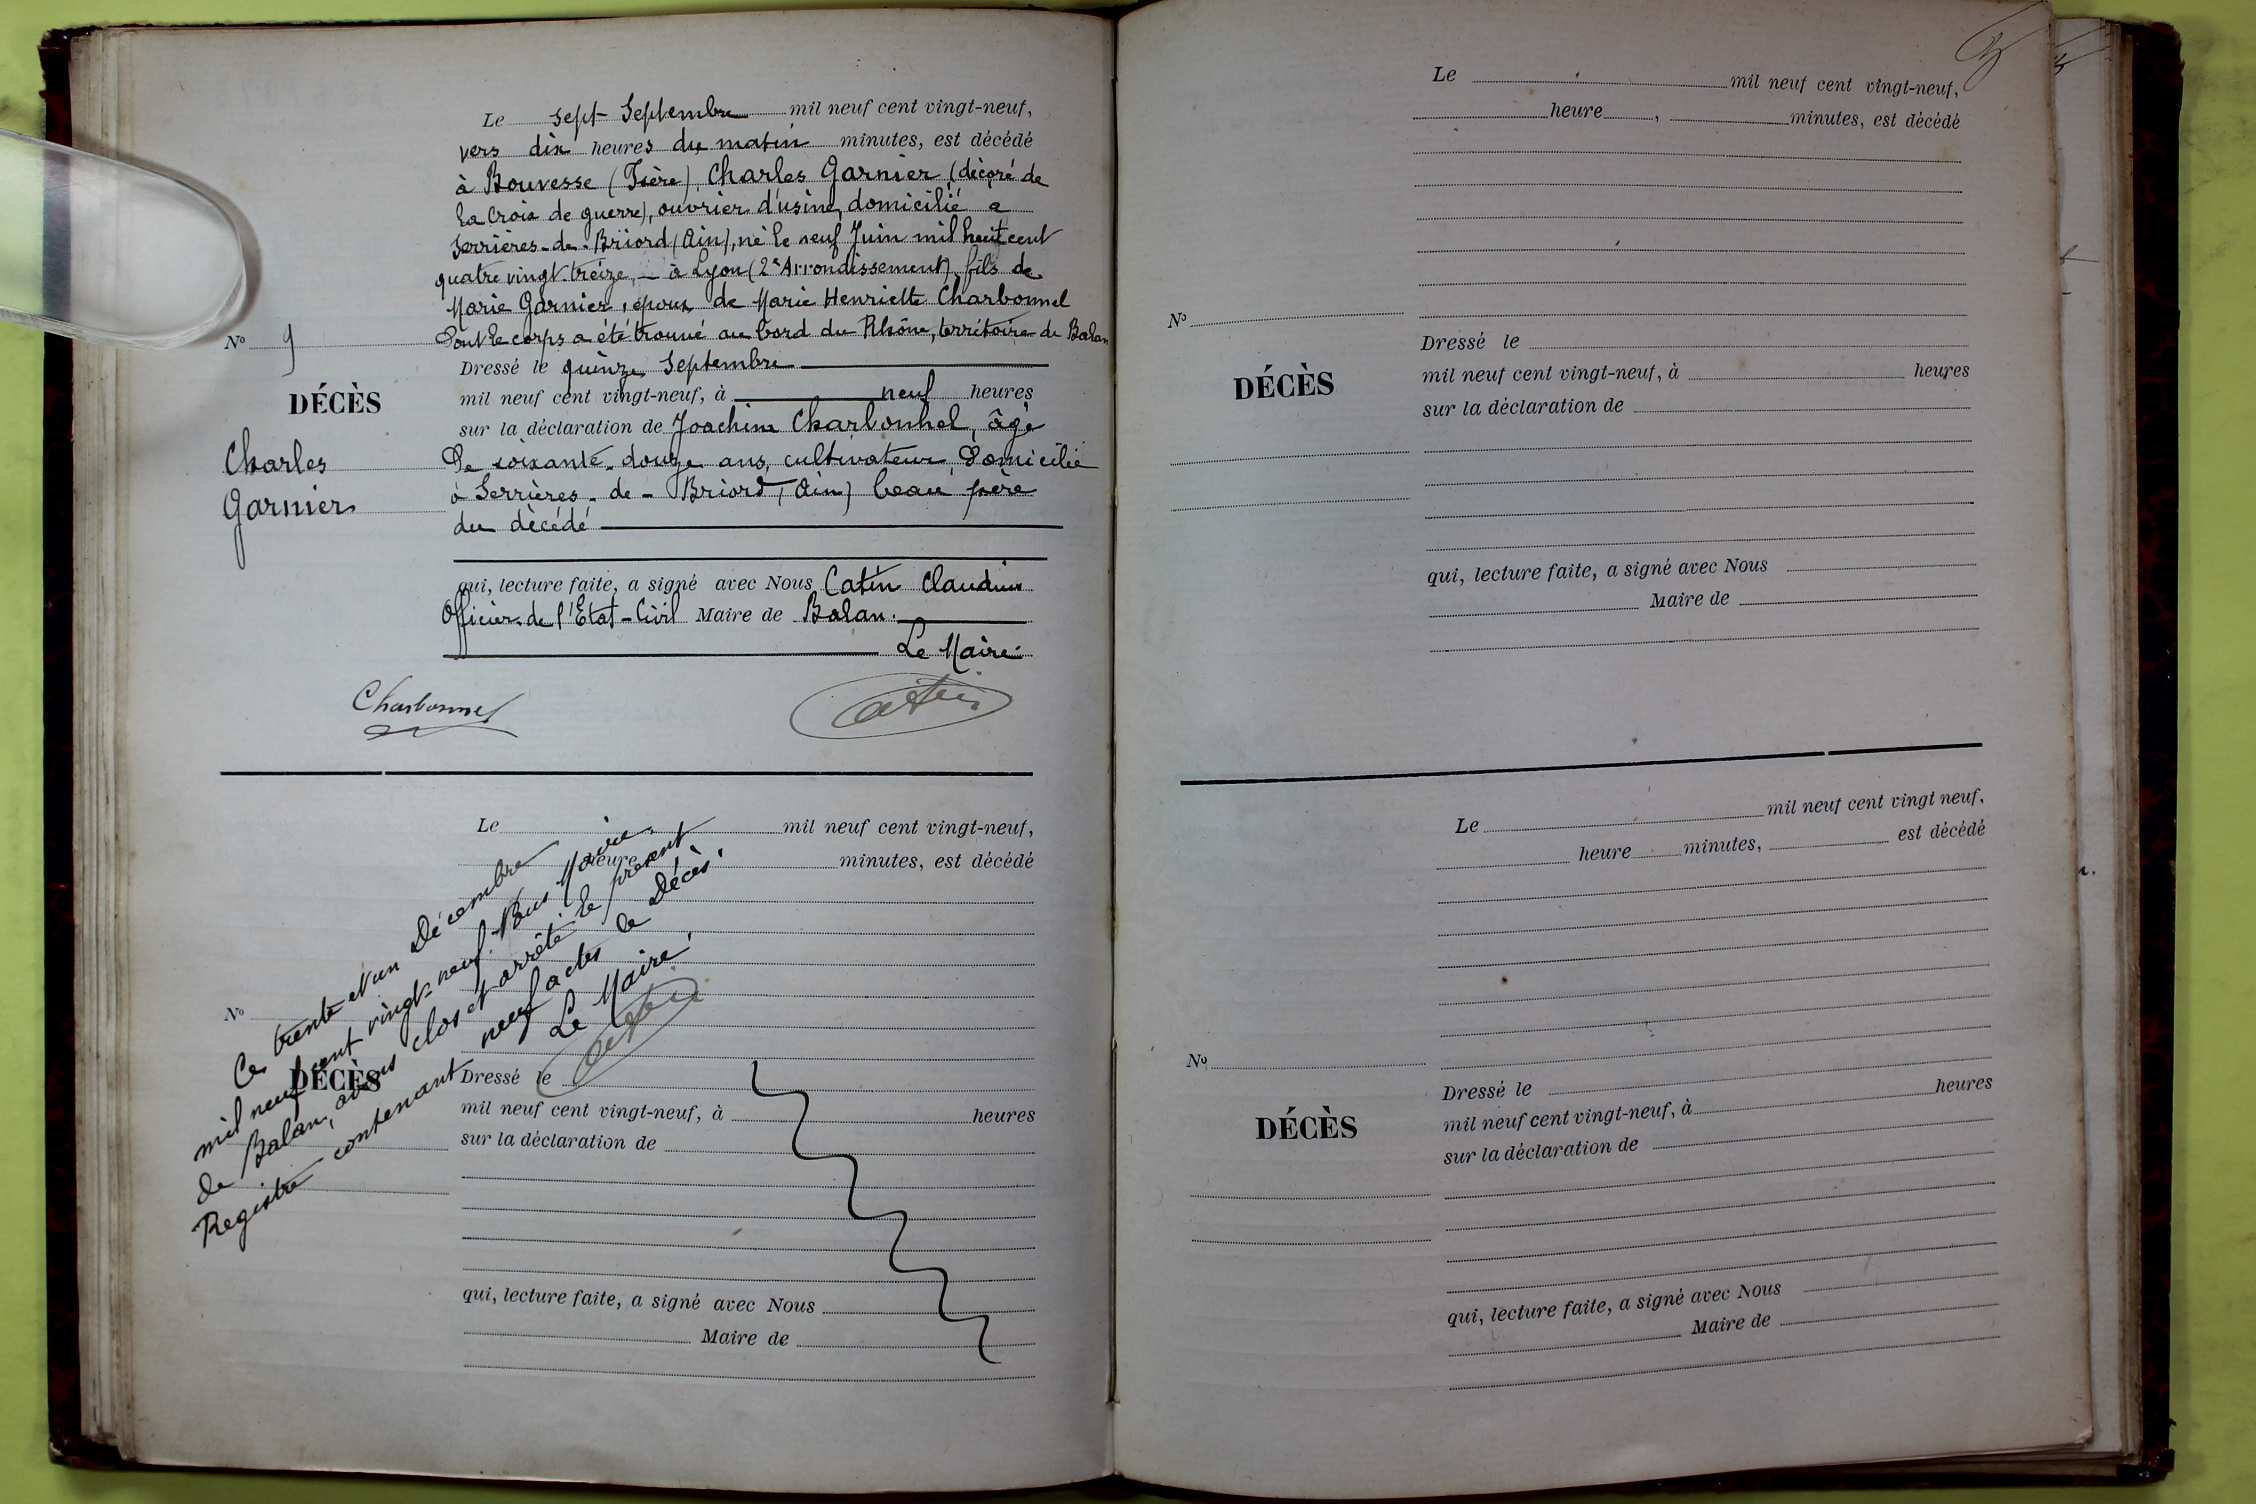 Le sept Septembre mil neuf cent vingt-neuf,
vers dix heures du matin minutes, est décédé
à Bouvesse (Isère), Charles Garnier (décoré de
la Croix de guerre), ouvrier d'usine, domicilié a
Serrières-de-Briord (Ain), né le neuf Juin mil huit cent
quatre vingt-treize, — à Lyon (2e Arrondissement), fils de
Marie Garnier, époux de Marie Henriette Charbonnel
Dont le corps a été trouvé au bord du Rhône, territoire de Balan
Nº 9
Dressé le quinze Septembre
mil neuf cent vingt-neuf, à neuf heures
DÉCÈS
sur la déclaration de Joachim Charbonnel, âgé
Charles
De soixante-douze ans, cultivateur, Domicilié
Garnier
à Serrières-de-Briord (Ain) beau père
du décédé
qui, lecture faite, a signé avec Nous Catin Claudius
Officier de l'Etat-Civil Maire de Balan.
Le Maire
Charbonnel
Catin
Le mil neuf cent vingt-neuf,
heure minutes, est décédé
Nº
DÉCÈS
Dressé le
mil neuf cent vingt-neuf, à heures
sur la déclaration de
qui, lecture faite, a signé avec Nous
Maire de
Ce trente et un Décembre
mil neuf cent vingt-neuf. Nous Maire
de Balan, avons clos et arrêté le présent
Registre contenant neuf actes de Décès.
Le Maire
Catin
Le mil neuf cent vingt-neuf,
heure , minutes, est décédé
Nº
Dressé le
DÉCÈS
mil neuf cent vingt-neuf, à heures
sur la déclaration de
qui, lecture faite, a signé avec Nous
Maire de
Le mil neuf cent vingt neuf,
heure minutes, est décédé
Nº
Dressé le heures
DÉCÈS
mil neuf cent vingt-neuf, à
sur la déclaration de
qui, lecture faite, a signé avec Nous
Maire de